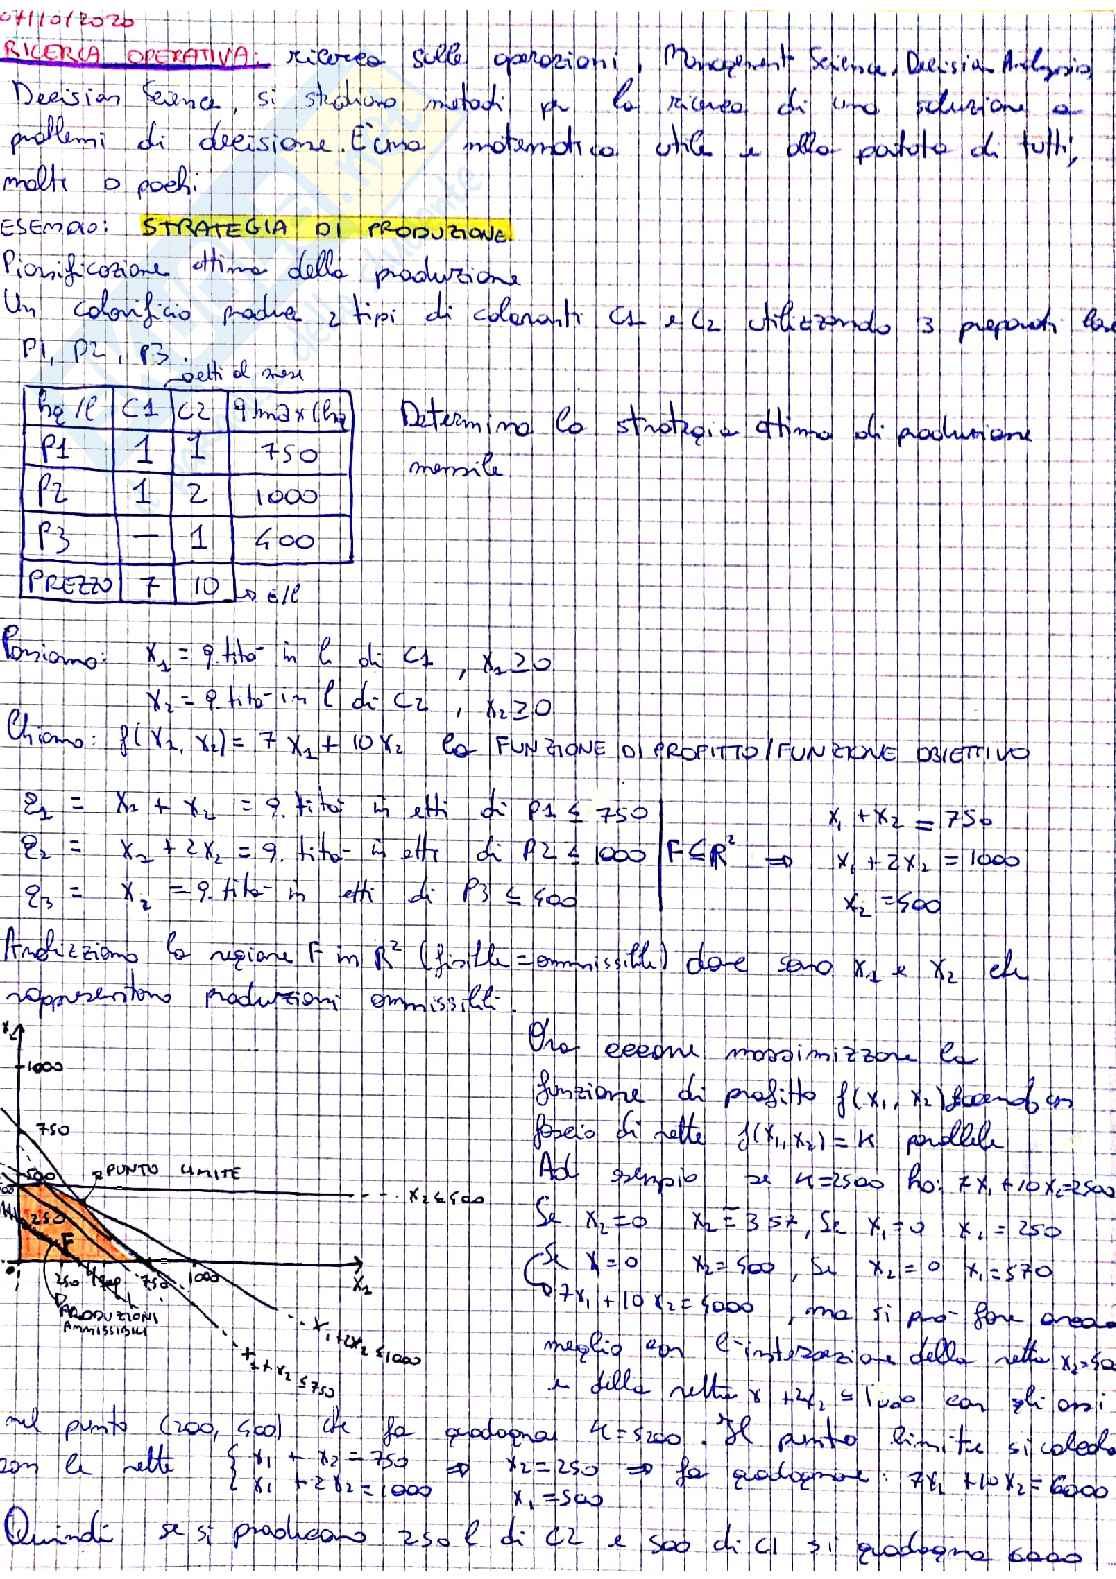 07/10/2020
RICERCA OPERATIVA: ricerca sulle operazioni, Management Science, Decision Analysis,
Decision Science, si studiano metodi per la ricerca di una soluzione a
problemi di decisione. È una matematica utile e alla portata di tutti,
molti o pochi.
ESEMPIO: STRATEGIA DI PRODUZIONE
Pianificazione ottima della produzione
Un colorificio produce 2 tipi di coloranti C1 e C2 utilizzando 3 preparati base
P1, P2, P3.
etti al mese
hg/l C1 C2 q.tmax (hg)
P1 1 1 750
P2 1 2 1000
P3 — 1 400
PREZZO 7 10 → €/l
Determina la strategia ottima di produzione
mensile
Poniamo: x1 = q.tità in l di C1, x1 ≥ 0
x2 = q.tità in l di C2, x2 ≥ 0
Chiamo: f(x1, x2) = 7x1 + 10x2 la FUNZIONE DI PROFITTO/FUNZIONE OBIETTIVO
q1 = x1 + x2 = q.tità in etti di P1 ≤ 750
q2 = x1 + 2x2 = q.tità in etti di P2 ≤ 1000 F ⊆ R² ⇒
q3 = x2 = q.tità in etti di P3 ≤ 400
x1 + x2 = 750
x1 + 2x2 = 1000
x2 = 400
Analizziamo la regione F in R² (fisible = ammissibile) dove sono x1 e x2 che
rappresentano produzioni ammissibili.
x2
1000
750
500
250
F
PUNTO LIMITE
x2 ≤ 400
0
250
750
1000
x1
PRODUZIONI
AMMISSIBILI
x1 + 2x2 ≤ 1000
x1 + x2 ≤ 750
Ora occorre massimizzare la
funzione di profitto f(x1, x2) facendo un
fascio di rette f(x1, x2) = K parallele
Ad esempio se K=2500 ho: 7x1 + 10x2 = 2500
Se x2=0 x2=357, Se x1=0 x1=250
Se x=0 x2=400, Se x2=0 x1=570
7x1 + 10x2 = 4000, ma si può fare ancora
meglio con l'intersezione della retta
e della retta x + 2x2 ≤ 1000 con gli assi
nel punto (200, 400) che fa guadagnar K=5200. Il punto limite si calcola
con le rette { x1 + x2 = 750 ⇒ x2 = 250 ⇒ fa guadagnare: 7x1 + 10x2 = 6000
{ x1 + 2x2 = 1000 x1 = 500
Quindi se si producano 250 l di C2 e 500 di C1 si guadagna 6000